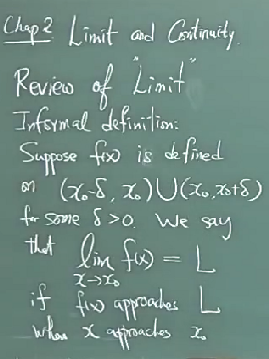 Chap 2 Limit and Continuity.
Review of "Limit"
Informal definition:
Suppose f(x) is defined
on (x₀-δ, x₀)∪(x₀, x₀+δ)
for some δ>0. We say
that lim f(x) = L
x→x₀
if f(x) approaches L
when x approaches x₀